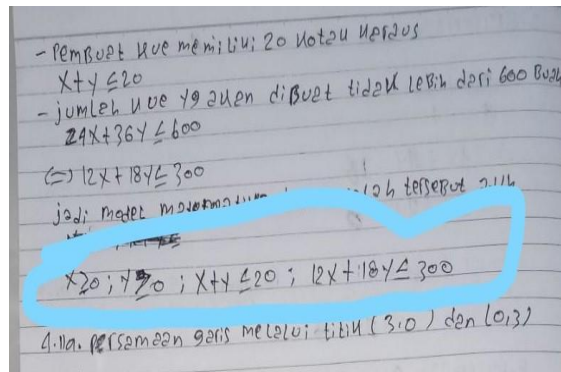 - Pembuat kue memiliki 20 kotak kerdus
x+y ≤ 20
- jumlah kue yg akan dibuat tidak lebih dari 600 Buah
24x+36y ≤ 600
(=) 12x+18y ≤ 300
jadi model tersebut
x≥0 ; y≥0 ; x+y ≤20 ; 12x+18y ≤ 300
4.11a. persamaan garis melalui titik (3.0) dan (0,3)